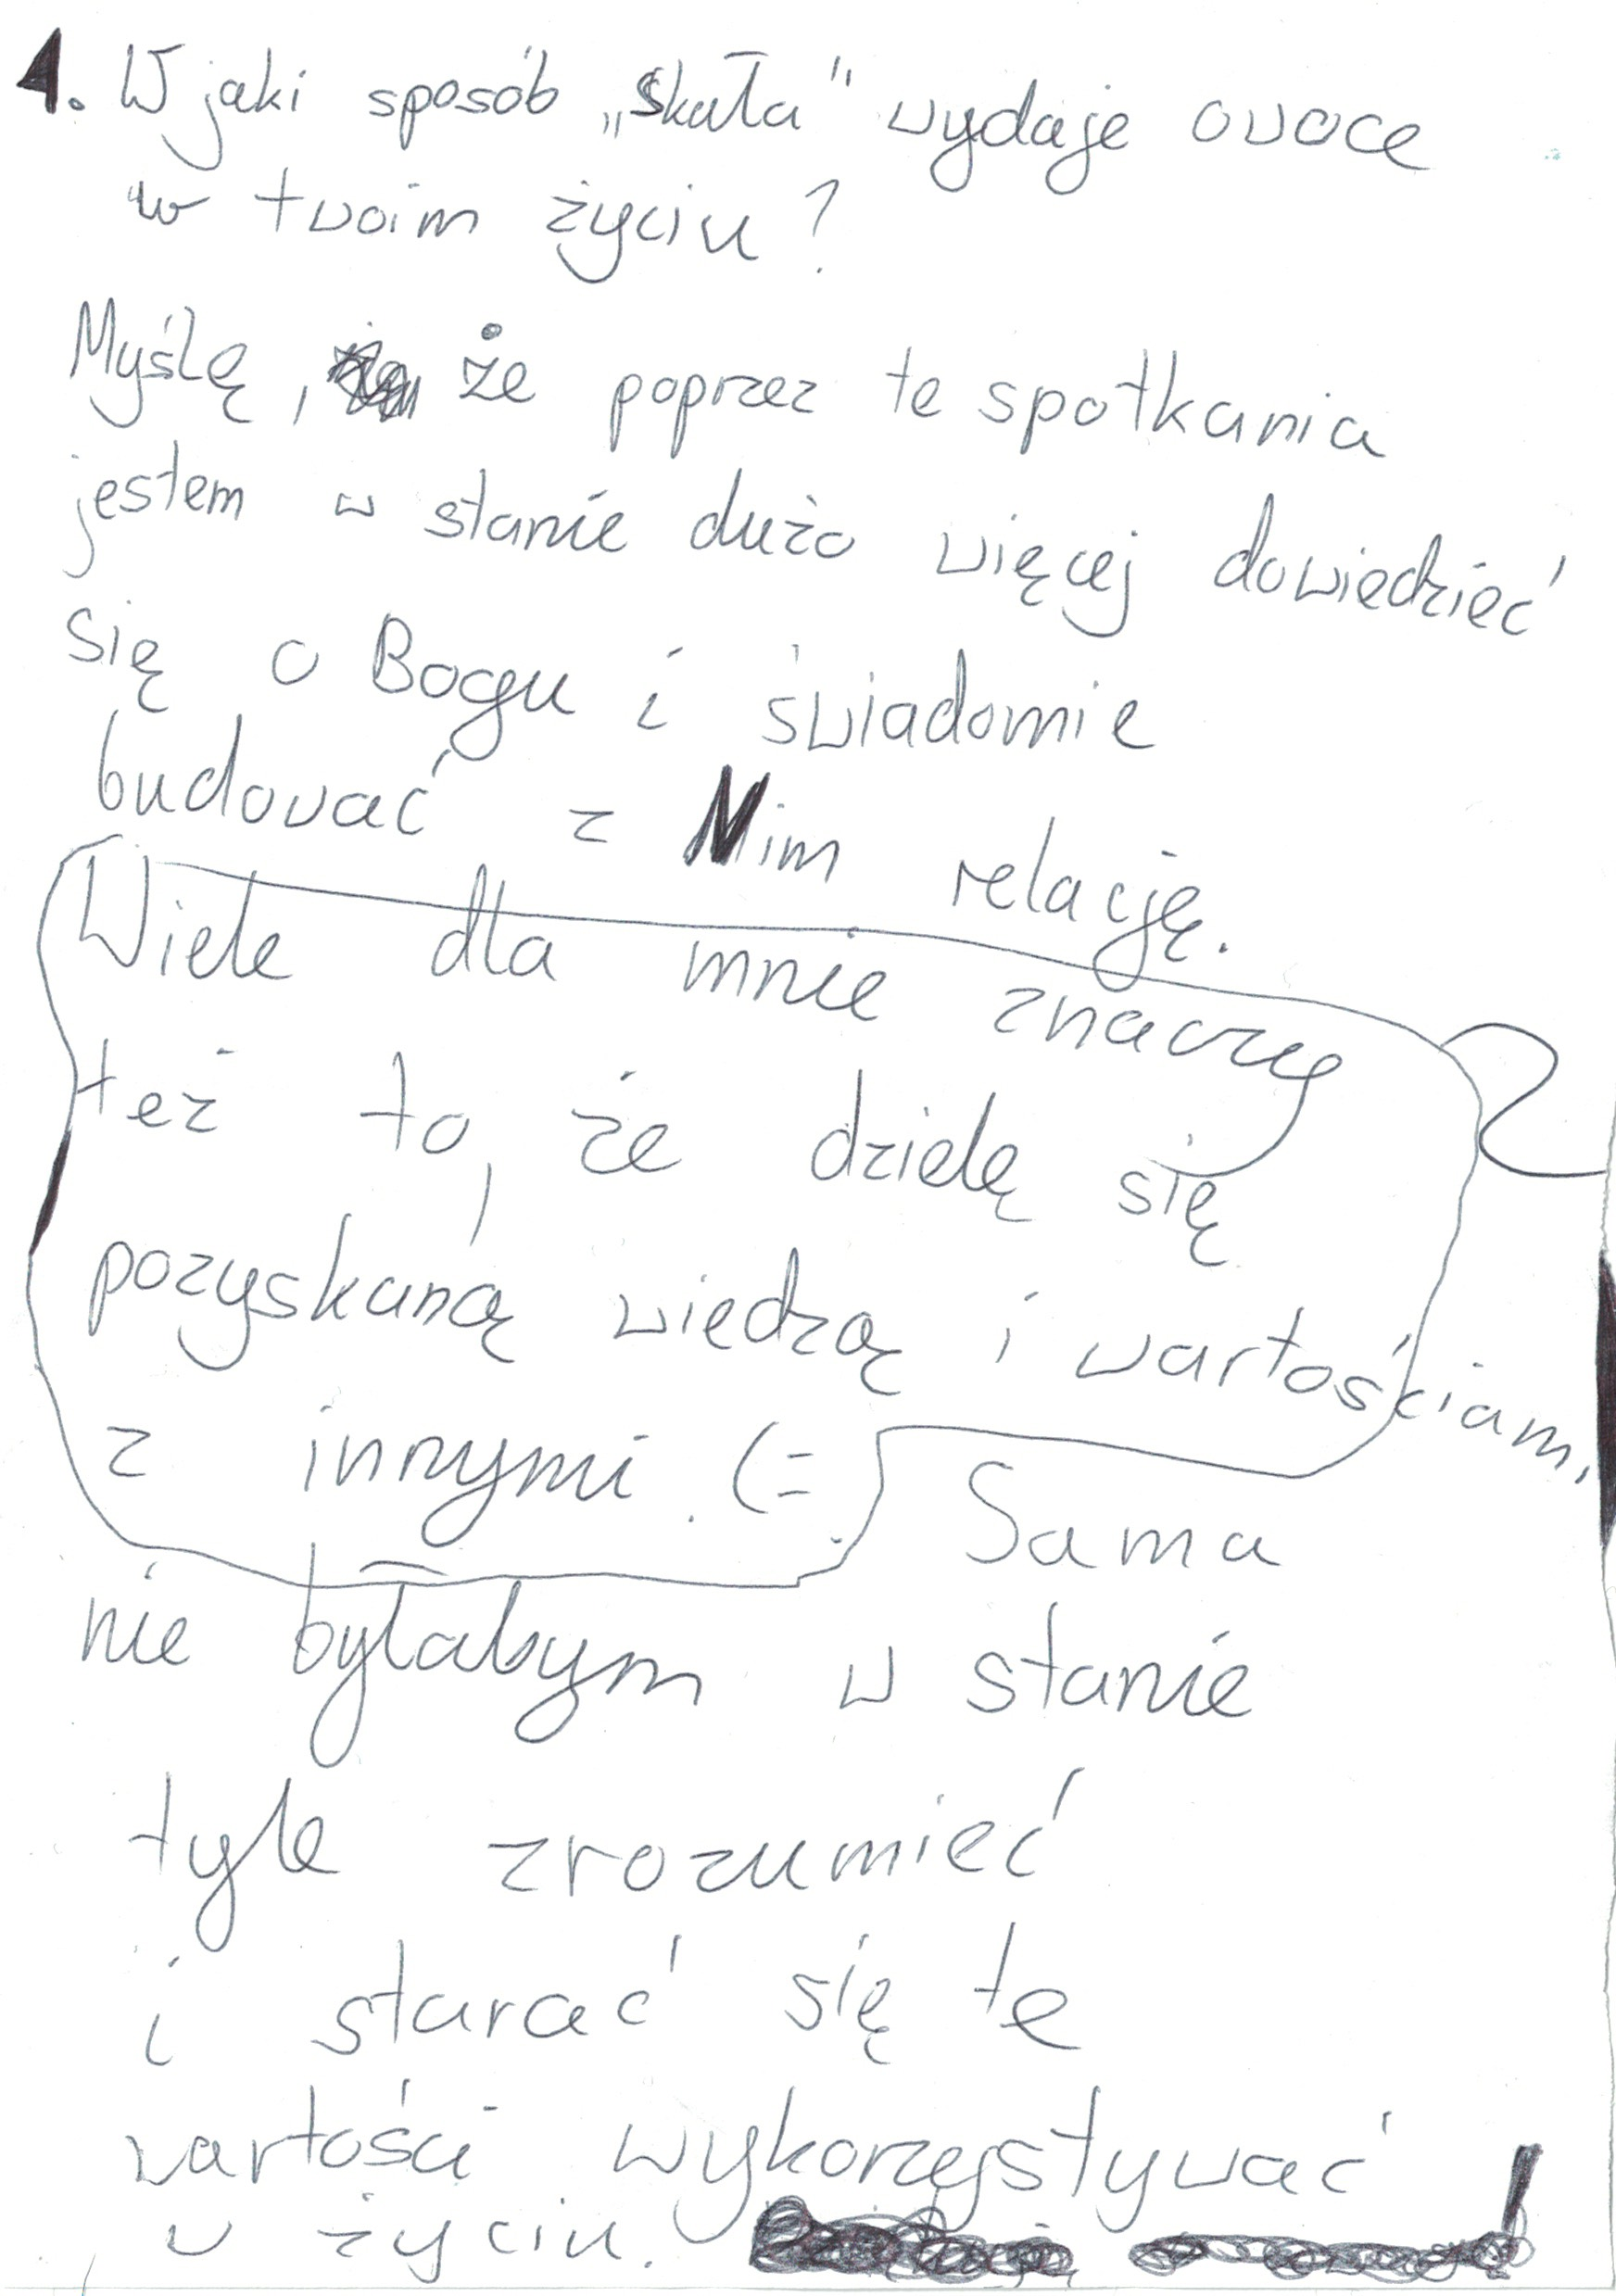 1. W jaki sposób „Skała" wydaje owoce
w twoim życiu?
Myślę, że poprzez te spotkania
jestem w stanie dużo więcej dowiedzieć
się o Bogu i świadomie
budować z Nim relację.
Wiele dla mnie znaczy
też to, że dzielę się
pozyskaną wiedzą i wartościami
z innymi. (=
Sama
nie byłabym w stanie
tyle zrozumieć
i starać się te
wartości wykorzystywać
w życiu.